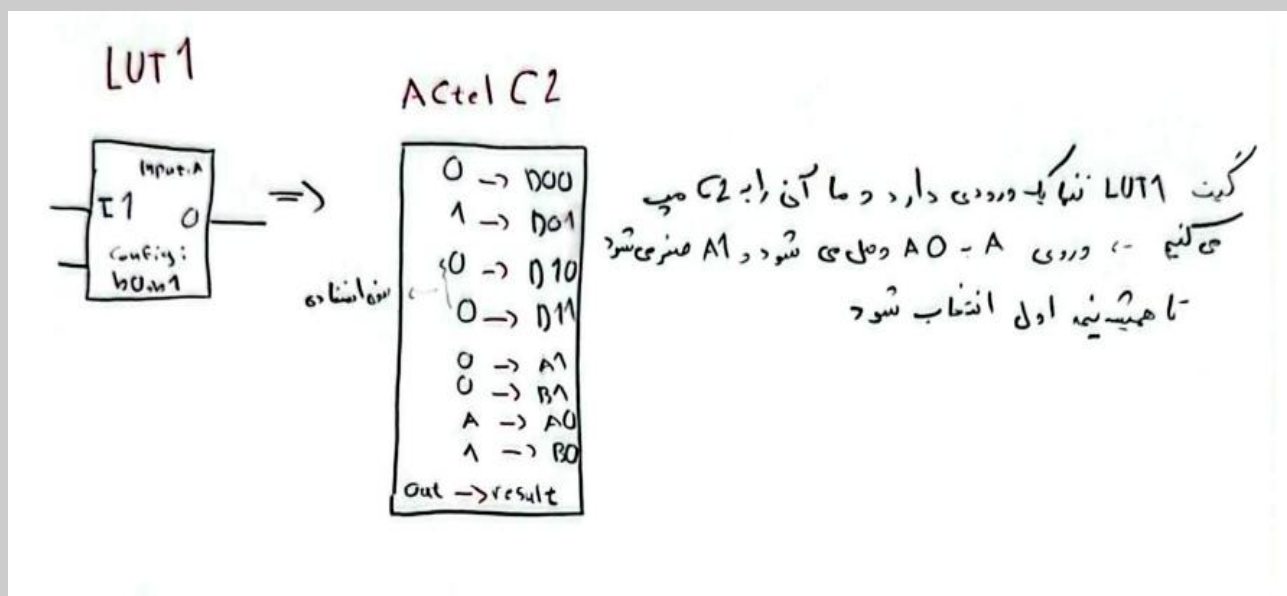 LUT1
Input:A
I1
O
Config:
b0,b1
=>
ACtel C2
0 -> D00
1 -> D01
0 -> D10
0 -> D11
استفاده
0 -> A1
0 -> B1
A -> A0
1 -> B0
Out -> result
گیت LUT1 تنها یک ورودی دارد و ما آن را به C2 مپ
می کنیم ورودی A به A0 وصل می شود و A1 صفر می شود
تا همیشه نیمه اول انتخاب شود